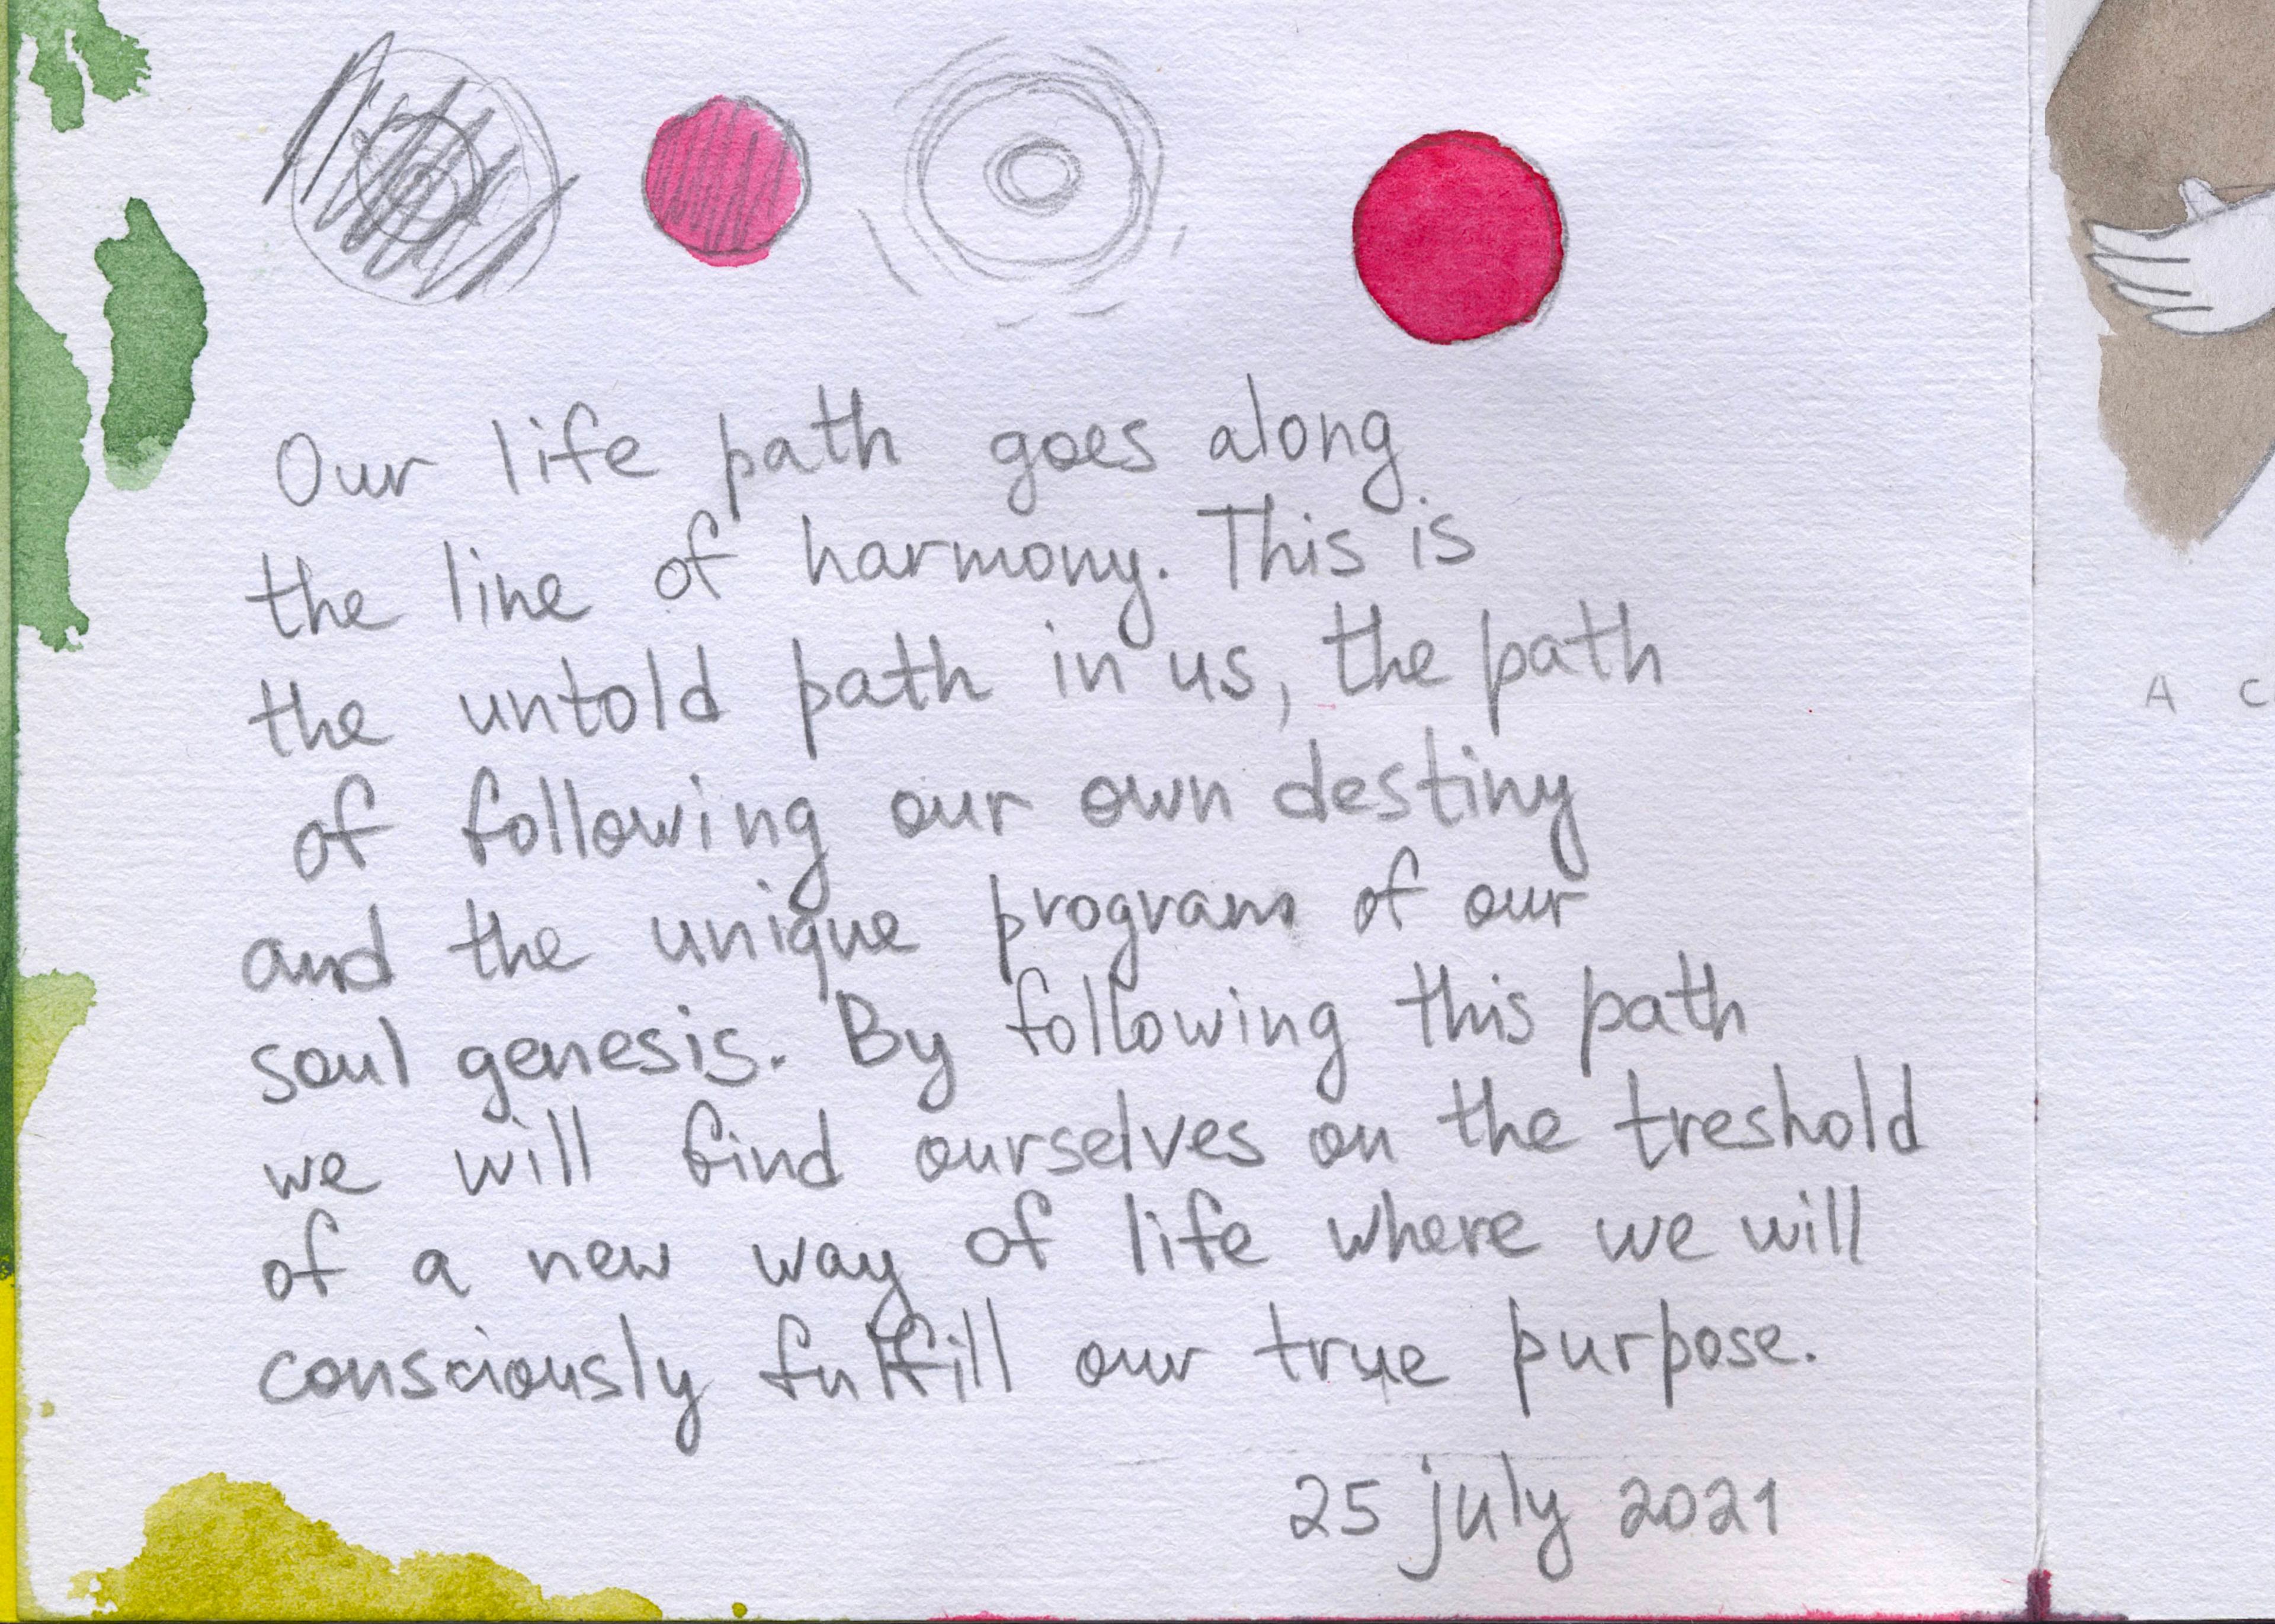 Our life path goes along
the line of harmony. This is
the untold path in us, the path
of following our own destiny
and the unique program of our
soul genesis. By following this path
we will find ourselves on the treshold
of a new way of life where we will
consciously fulfill our true purpose.
25 july 2021
A C